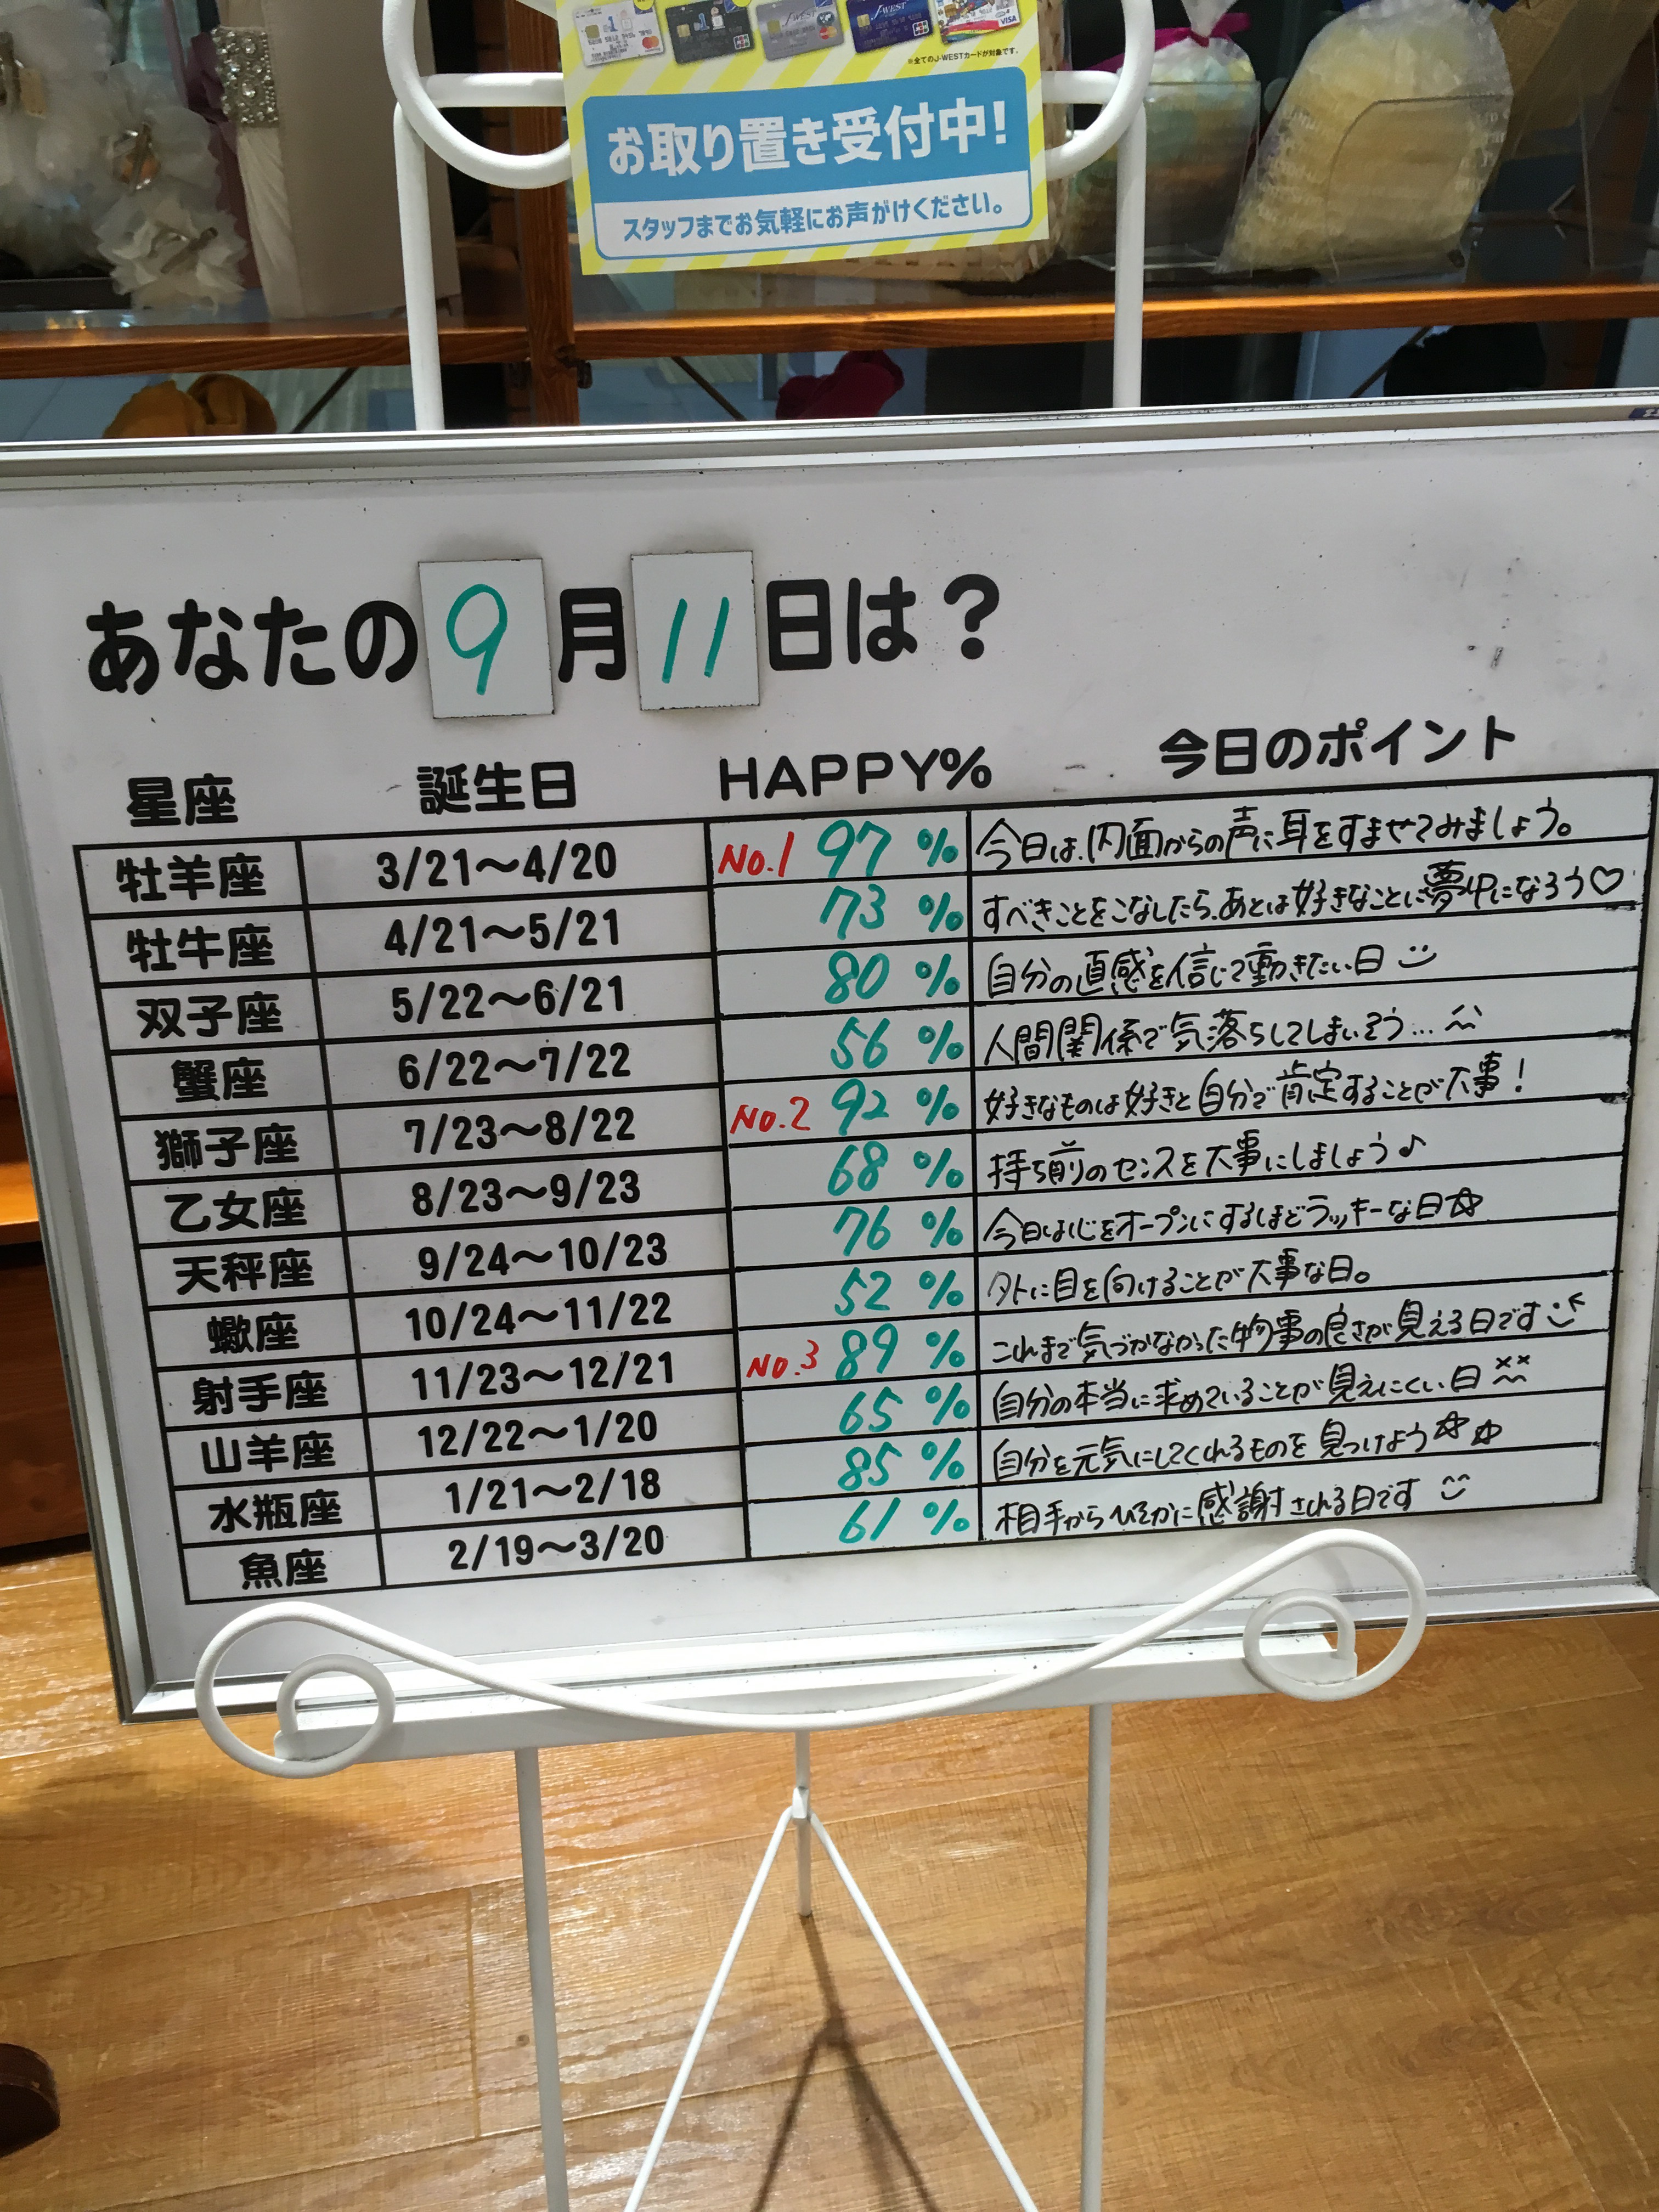 ※全てのJ-WESTカードが対象です。
お取り置き受付中!
スタッフまでお気軽にお声がけください。
あなたの9月11日は?
星座 誕生日 HAPPY% 今日のポイント
牡羊座 3/21~4/20 No.1 97 % 今日は、内面からの声に耳をすませてみましょう。
牡牛座 4/21~5/21 73 % すべきことをこなしたら、あとは好きなことに夢中になろう♡
双子座 5/22~6/21 80 % 自分の直感を信じて動きたい日
蟹座 6/22~7/22 56 % 人間関係で気落ちしてしまいそう...
獅子座 7/23~8/22 No.2 92 % 好きなものは好きと自分で肯定することが大事!
乙女座 8/23~9/23 68 % 持ち前のセンスを大事にしましょう♪
天秤座 9/24~10/23 76 % 今日は心をオープンにするほどラッキーな日☆
蠍座 10/24~11/22 52 % 外に目を向けることが大事な日。
射手座 11/23~12/21 No.3 89 % これまで気づかなかった物事の良さが見える日です
山羊座 12/22~1/20 65 % 自分の本当に求めていることが見えにくい日
水瓶座 1/21~2/18 85 % 自分を元気にしてくれるものを見つけよう☆☆
魚座 2/19~3/20 61 % 相手からひそかに感謝される日です